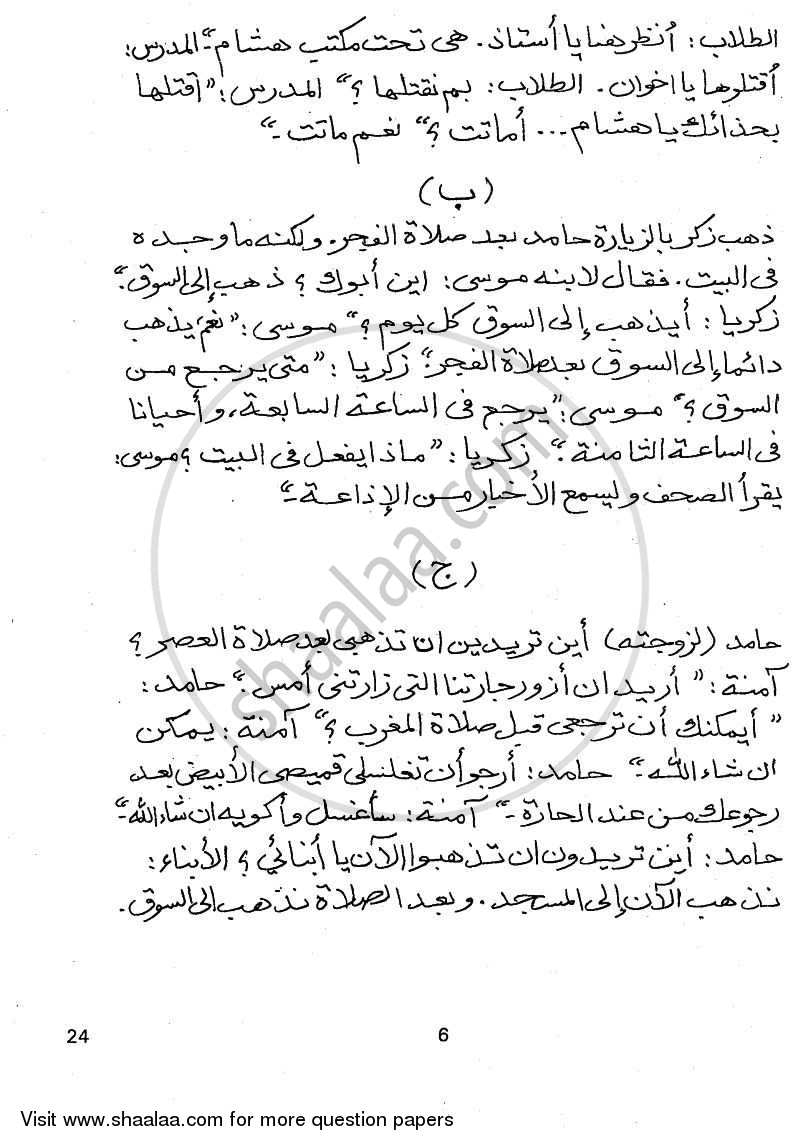 الطلاب: أُنظر هنا يا أستاذ. هى تحت مكتب هشام" المدرس:
أُقتلوها يا اخوان. الطلاب: بم نقتلها ؟" المدرس: "اقتلها
بحذائك يا هشام ... أماتت ؟" نعم ماتت -"
(ب)
ذهب زكريا لزيارة حامد بعد صلاة الفجر. ولكنه ما وجده
فى البيت. فقال لابنه موسى: اين أبوك ؟ ذهب إلى السوق."
زكريا : أيذهب إلى السوق كل يوم ؟" موسى: "نعم، يذهب
دائما إلى السوق بعد صلاة الفجر" زكريا : "متى يرجع من
السوق ؟" موسى: "يرجع فى الساعة السابعة، وأحيانا
فى الساعة الثامنة." زكريا : "ماذا يفعل فى البيت ؟ موسى:
يقرأ الصحف ويسمع الأخبار من الإذاعة -"
(ج)
حامد (لزوجته) أين تريدين ان تذهبى بعد صلاة العصر ؟
آمنة : "أريد ان أزور جارتنا التى زارتنى أمس." حامد :
"أيمكنك أن ترجعى قبل صلاة المغرب ؟" آمنة : يمكن
ان شاء الله -" حامد : أرجو أن تغسلى قميصى الأبيض بعد
رجوعك من عند الجارة -" آمنة : سأغسل وأكويه ان شاء الله -"
حامد : أين تريدون ان تذهبوا الآن يا أبنائي ؟ الأبناء :
نذهب الآن إلى المسجد. وبعد الصلاة نذهب الى السوق.
24 6
shaalaa.com
Visit www.shaalaa.com for more question papers